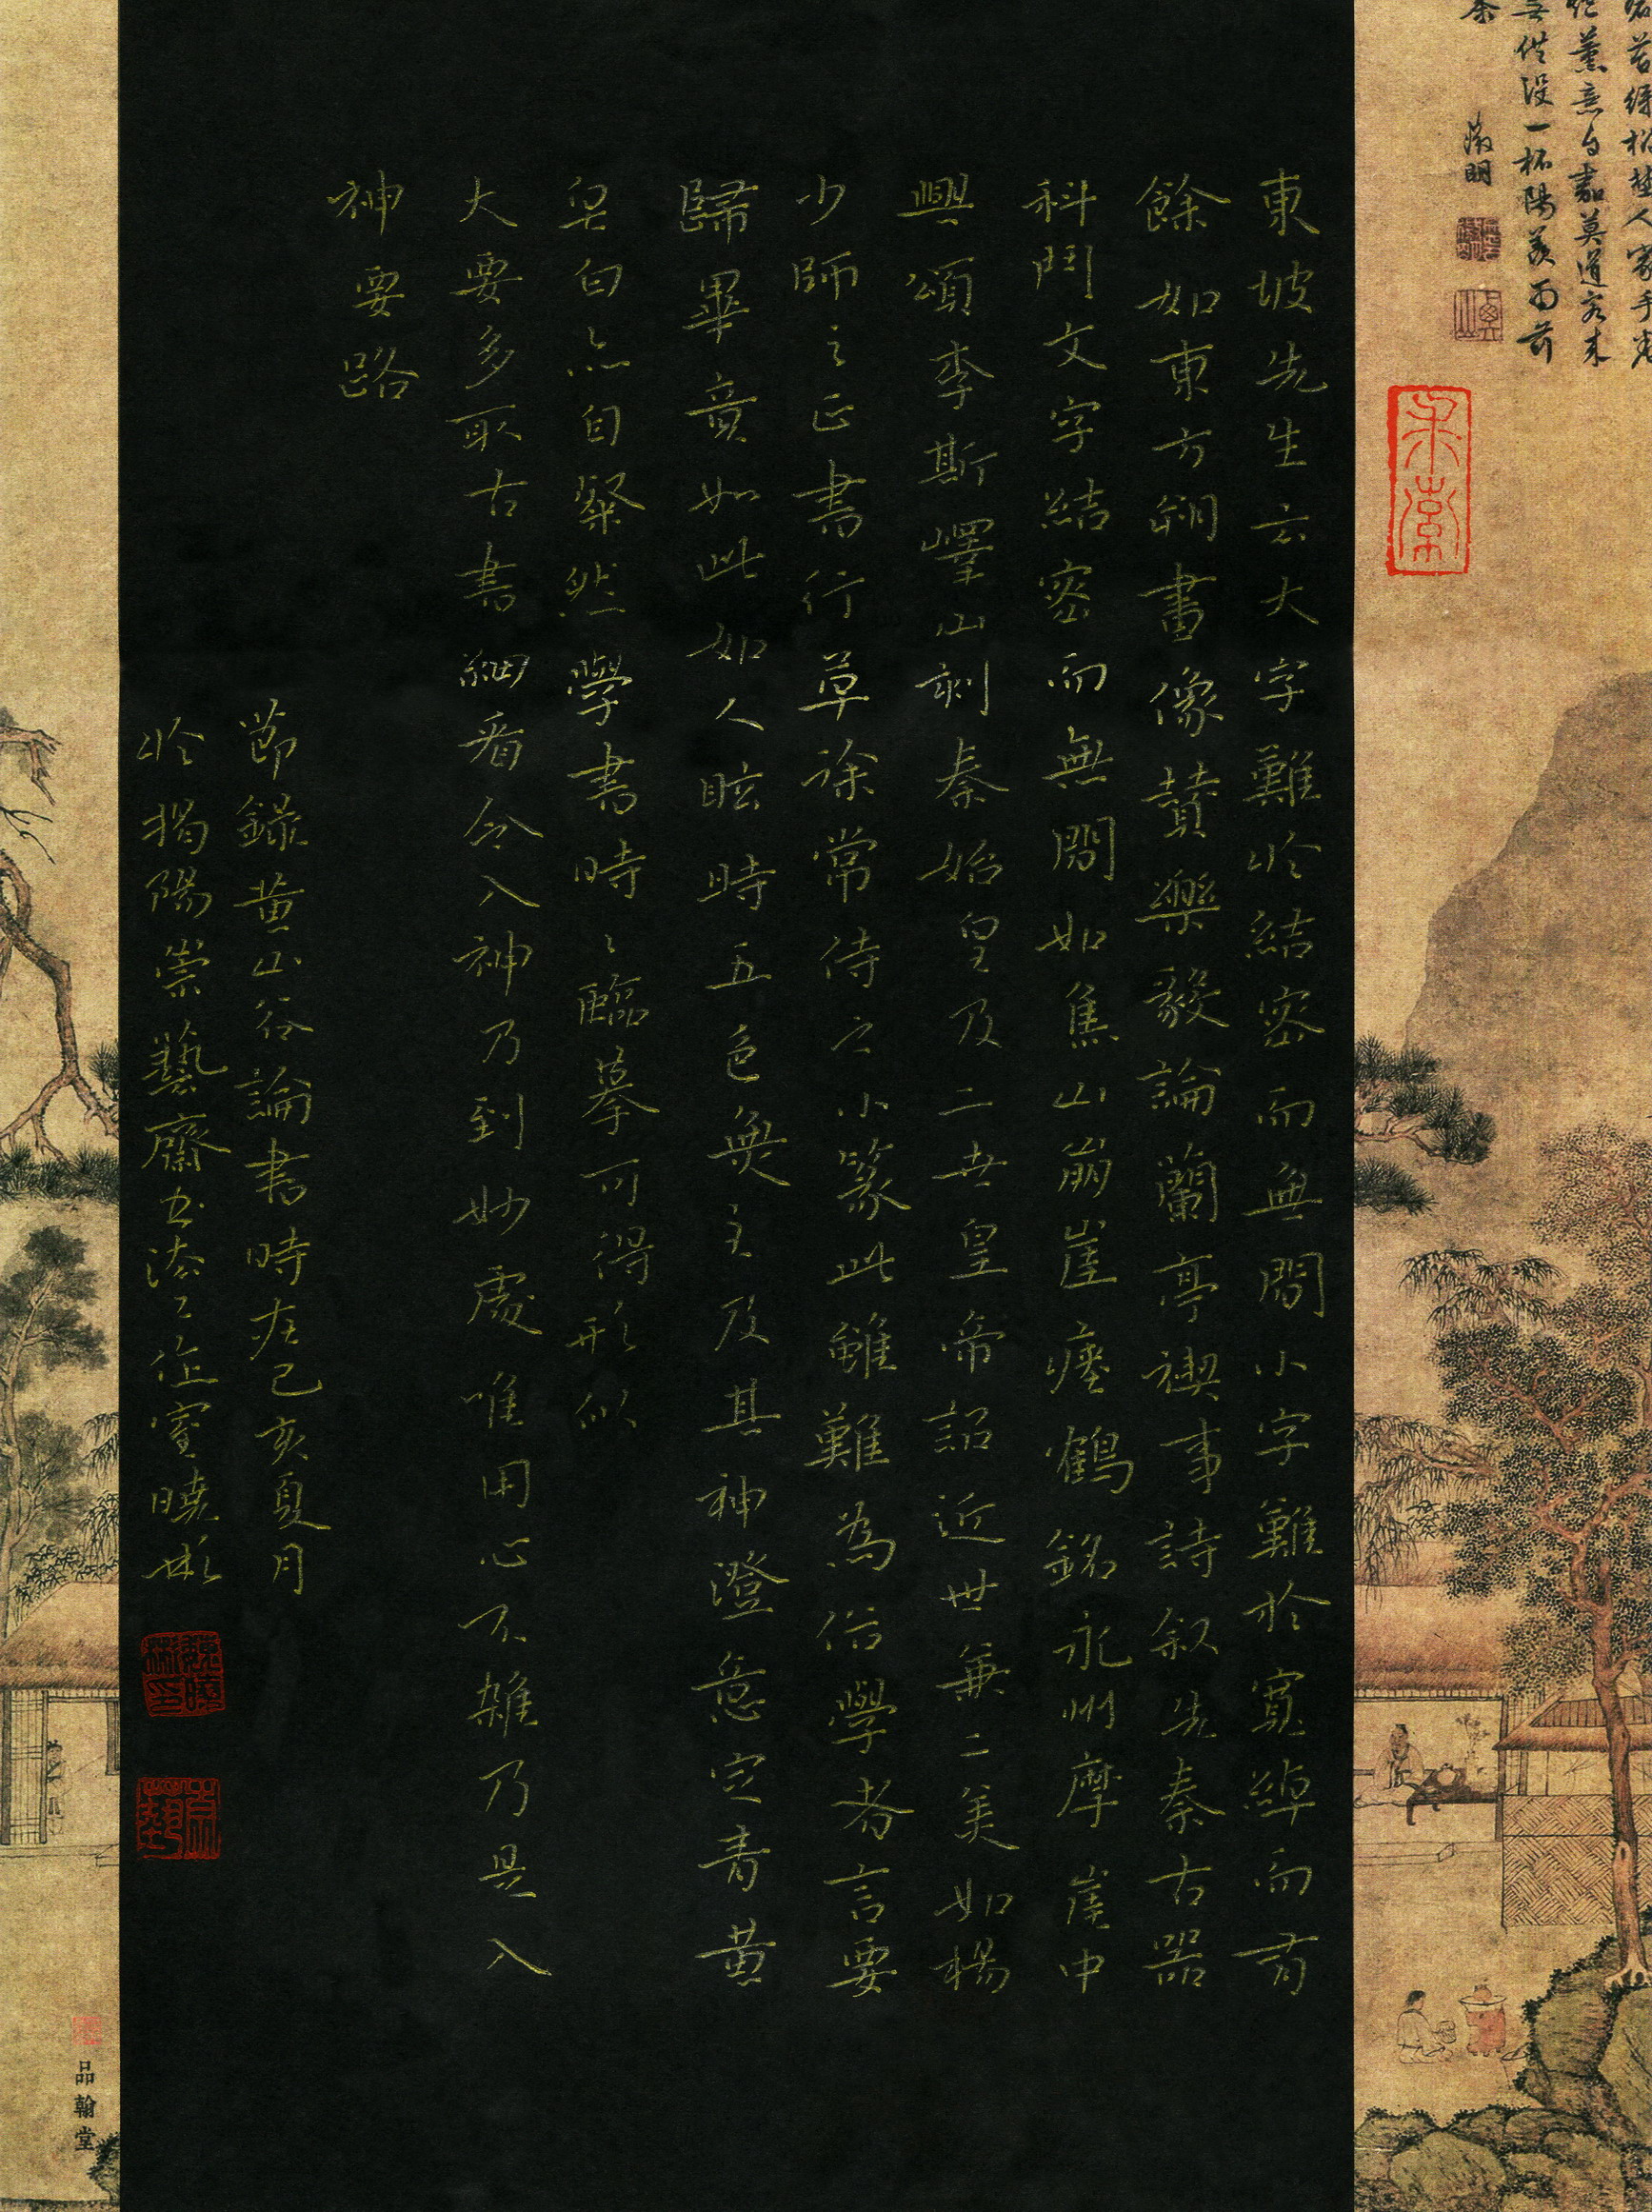 薰意自嘉莫道客來
供設一杯陽羨雨前
茶
徵明
東坡先生云大字難於結密而無間小字難於寬綽而有
餘如東方朔畫像贊樂毅論蘭亭禊事詩叙先秦古器
科鬥文字結密而無間如焦山崩崖瘞鶴銘永州摩崖中
興頌李斯嶧山刻秦始皇及二世皇帝詔近世兼二美如楊
少師之正書行草徐常侍之小篆此雖難為俗學者言要
歸畢竟如此如人眩時五色無主及其神澄意定青黃
皂白亦自粲然學書時〻臨摹可得形似
大要多取古書細看令入神乃到妙處唯用心不雜乃是入
神要路
節錄黃山谷論書時在己亥夏月
於揭陽崇藝齋書法工作室曉彬
崇藝
品翰堂